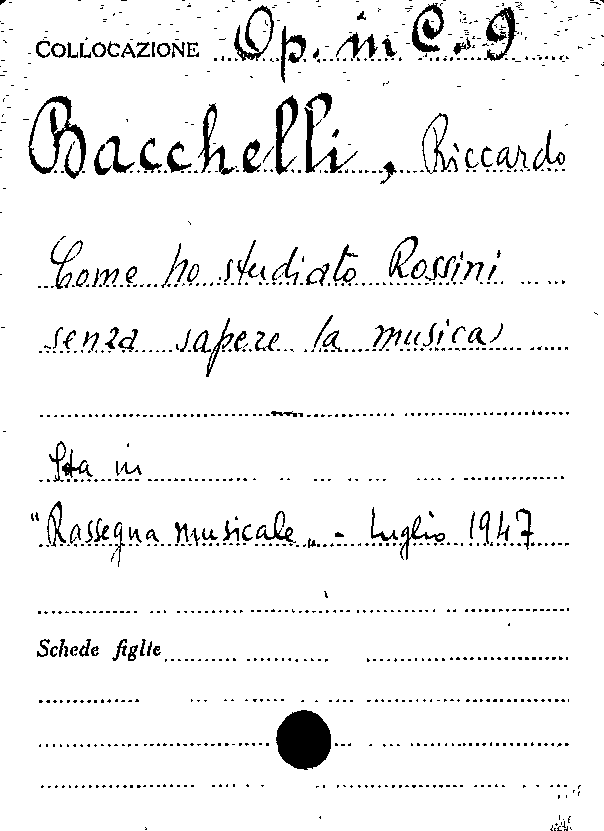 COLLOCAZIONE Op. in C. 9
Bacchelli, Riccardo
Come ho studiato Rossini
senza sapere la musica
Sta in
"Rassegna musicale„ - Luglio 1947
Schede figlie